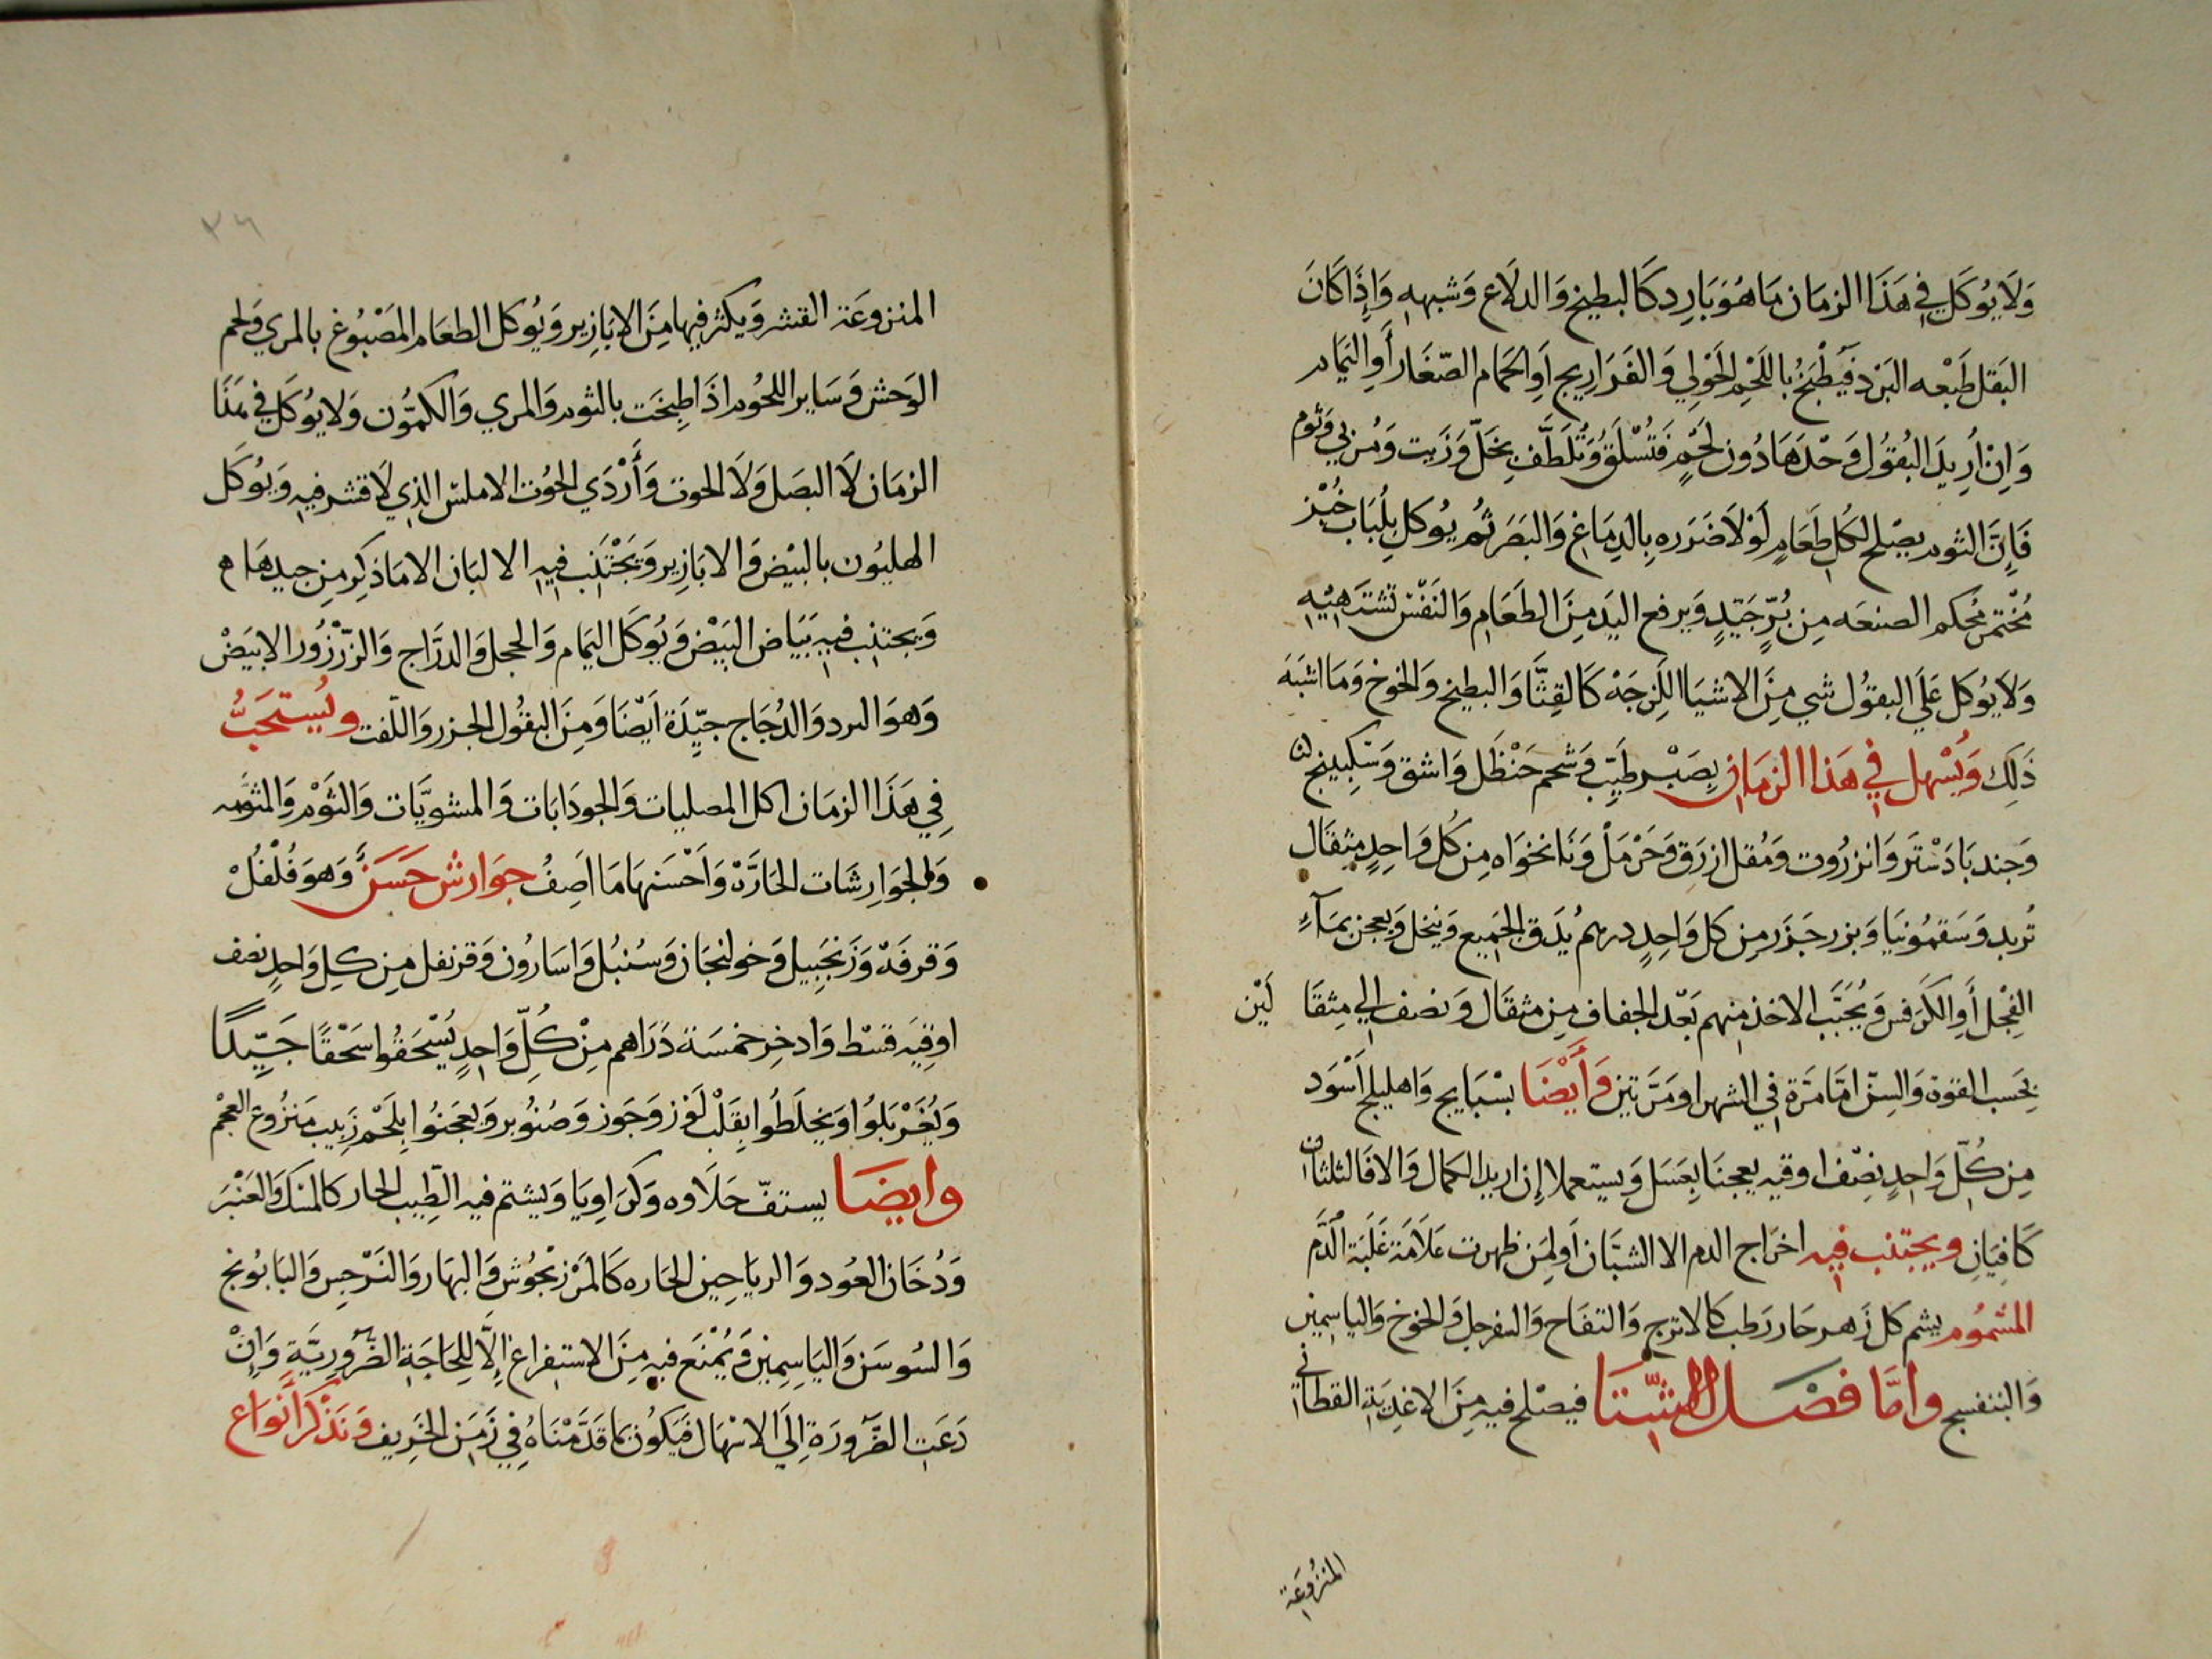 وَلَا يُوكَل فِي هَذَا الزمَان مَا هُوَ بَارِد كَالبطيخ وَالدلَاع وَشبهه وَإِذَا كَانَ
البَقل طَبْعه البَرْد فَيُطْبَخُ باللَحْمِ الحَوْلِي وَالفَرَارِيج أَوِ الحَمَام الصّغَار أَوِ اليَمَام
وَاِنْ أُرِيدَ البُقُول وَحْدَهَا دُون لَحْمٍ فَتُسْلَقُ وَتُلَطَّف بِخَلّ وَزَيت وَمُري وَثوم
فَإِنَّ الثوم يصْلح لكُل طَعَامٍ لَوْلَا ضَرَره بِالدِمَاغِ وَالبَصَر ثُم يُوكل بِلُبَاب خُبْز
مُخْتَمِر مُحكم الصنعَه مِن بُرٍّ جَيّدٍ وَيرفع اليَد مِنَ الطَعَامِ وَالنَفْس تشتَهيْه
وَلَا يُوكل عَلَي البقوُل شي مِنَ الاشيَا اللَزِجَهْ كَالقِثَّا وَالبطيخ وَالخوخ وَمَا اشبَهَ
ذَلِك وَيُسْهل فِي هَذا الزمَان بِصَبْر طَيِّب وَشحم حَنْظَل وَاشق وَسَكبينج
وَجند بَادَسْتَر وَانزرُوت وَمُقل ازرَق وَحَرْمَلْ وَنَانخوَاه مِن كُل وَاحِدٍ مثقَال
تُربد وَسَقمُونيَا وَبزر جَزَر مِن كل وَاحِدٍ درهم يُدَق الجَمِيع وَينخل وَيعجن بمَآءِ
الفِجْل أَوِ الكَرَفس وَيُجَبَّب الاخذ منهم بَعْد الجفاف مِن مثقَال وَنصف إلي مِثقَا لَيْن
بِحَسب القوة وَالسِنّ امَّا مَرَّة فِي الشهر او مَرَّتين وَأَيْضَا بسْبَايج وَاهليلج اَسْوَد
مِن كُلّ وَاحِدٍ نِصْف اوقيه يعجنَا بِعَسَل وَيستعملا إِن اريد الكمال وَالا فَالثلثان
كَافِيَانِ ويجتنب فِيهِ اخرَاج الدم الا الشبَّان أَو لِمَن ظهرت عَلَامَة غَلَبَة الدَّم
المشمُوم يشم كل زَهر حَار رَطب كَالاترج وَالتفَاح وَالسفرجل وَالخوخ وَالياسمين
وَالبنفسج وامَّا فصْل الشِّتَا فيصْلح فيه مِنَ الاغذيَة القطَاني
المنزُوعَة
٢٦
المنزوعَة القشر وَيكثر فيها مِنَ الابَازِير وَيُوكل الطعَام المَصْبُوغ بالمري وَلحم
الوَحش وَسَاير اللحُوم اذَا طبِخَت بالثوم وَالمري وَالكمُّون وَلا يوُكَل فِي هَذَا
الزمَان لَا البصَل وَلَا الحوت وَأَرْدَي الحُوت الاملس الذي لَا قشر فيهِ وَيُوكَل
الهليُون بالبيْض وَالابَازِير وَيَجْتَنب فيه الالبَان الا مَا ذكِر مِن جيدهَا
وَيجتنب فيه بَيَاض البَيْض وَيُوكَل اليَمام وَالحجل وَالدرَّاج وَالزّرْزُور الابيَضْ
وَهوَ البرد وَالدُجَاج جيّدَة أيْضَا وَمِنَ البقُول الجزر وَاللّفت ويُستحَبُّ
فِي هَذَا الزمَان اكل المصليات وَالجودَابَات وَالمشويَّات وَالثوْم وَالمثوَّمه
وَالجوَارِشَات الحَارَّة وَاَحْسَنهَا مَا اَصِفُ جوَارش حَسَنٌ وَهوَ فُلْفُلْ
وَقرفَة وَزَنجَبِيل وَخولنجَان وَسُنبُل وَاسَارُون وَقرنفل مِن كلِ وَاحِدٍ نصف
اوقيَه قسْط وَادخِر خمسَة دَرَاهم مِنْ كُلِّ وَاحِدٍ يُسْحَقُوا سَحْقًا جَيِّدًا
وَيُغَرْبَلُوا وَيخلَطُوا بِقَلْب لَوز وَجَوز وَصنُوبر وَيعجَنُوا بِلَحْم زَبيب مَنزُوع العجْم
وايضَا يستفّ حَلَاوه وَكرَاوِيَا وَيشتم فيه الطِيب الحار كالمسك وَالعَنْبَر
وَدُخَان العُود وَالريَاحِين الحَاره كَالمَرْزنجُوش وَالبهَار وَالنَرْجس وَالبَابُونج
وَالسُوسَن وَاليَاسِمِين وَيُمْنَع فيهِ مِنَ الاستفراغ إِلَّا لِلحَاجَةِ الضَّرُورِيَّةِ وَإِنْ
دَعَتِ الضَّرُورَة إِلَي الاسْهَال فَيَكُون بمَا قَدَّمْنَاهُ فِي زَمَن الخَرِيف وَنَذْكُرُ أَنْوَاع